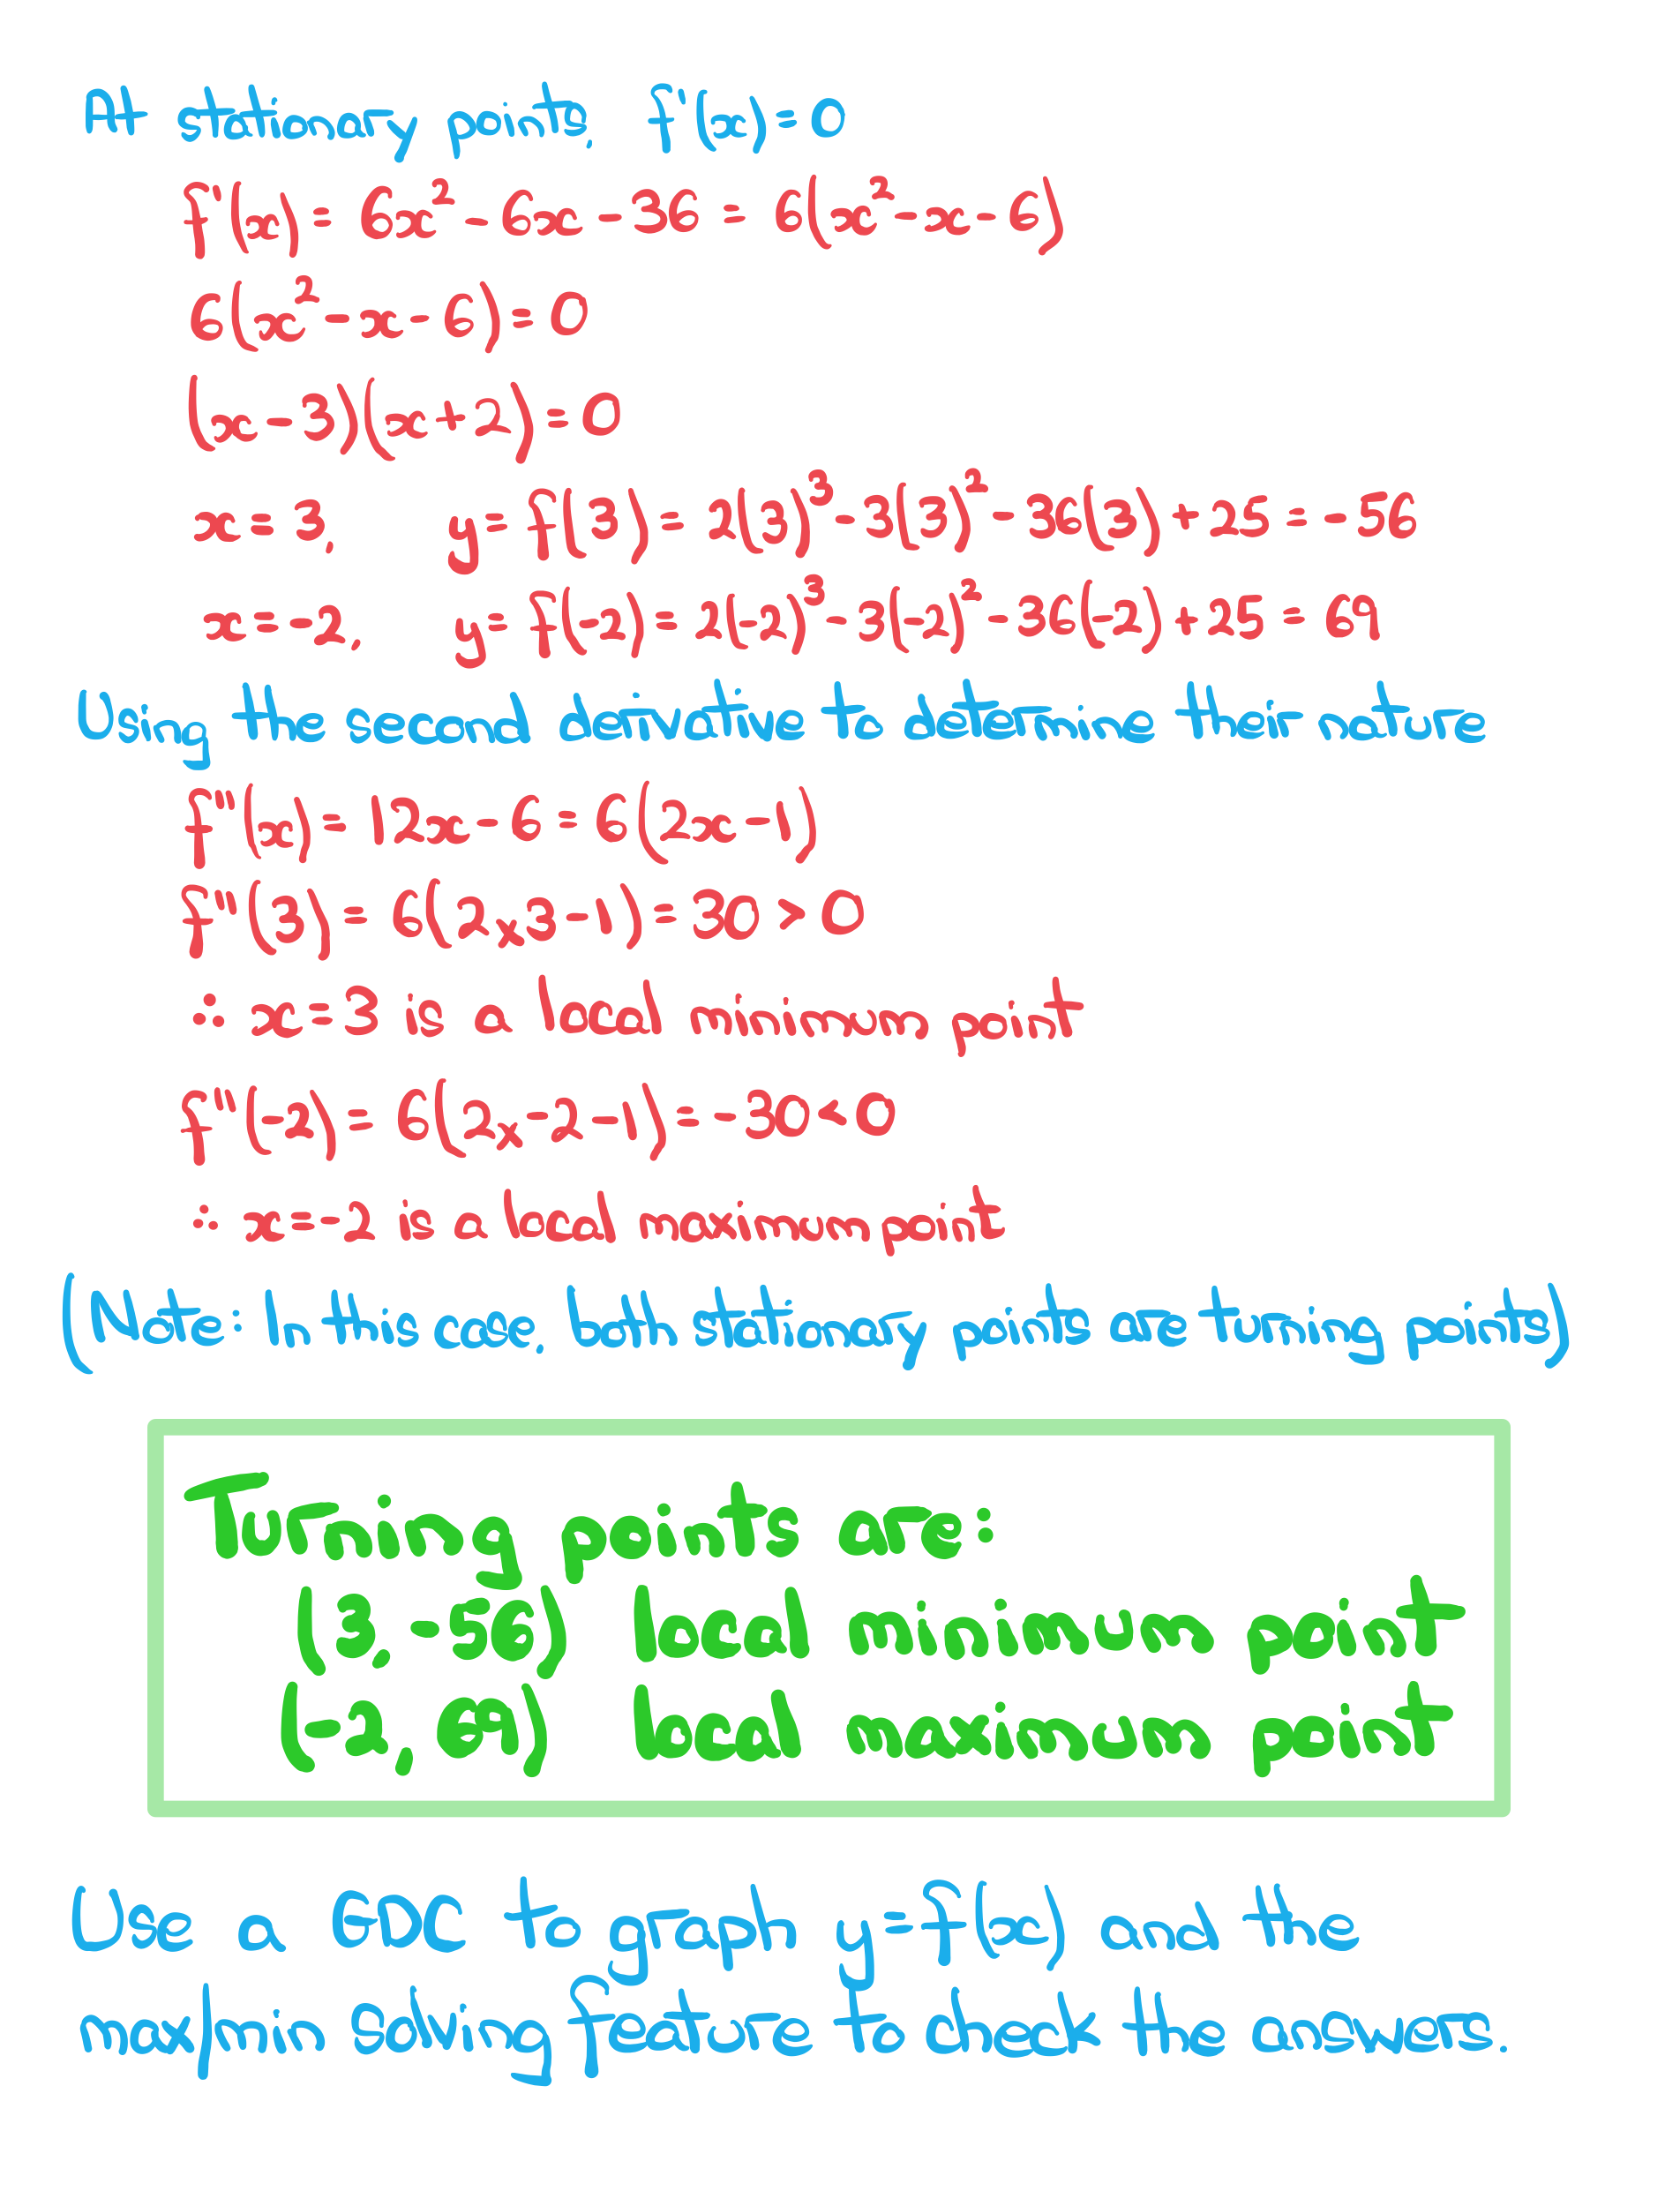 At stationary points, f'(x)=0
f'(x) = 6x² - 6x - 36 = 6(x² - x - 6)
6(x² - x - 6) = 0
(x - 3)(x + 2) = 0
x = 3, y = f(3) = 2(3)³ - 3(3)² - 36(3) + 25 = -56
x = -2, y = f(-2) = 2(-2)³ - 3(-2)² - 36(-2) + 25 = 69
Using the second derivative to determine their nature
f"(x) = 12x - 6 = 6(2x - 1)
f"(3) = 6(2×3 - 1) = 30 > 0
∴ x = 3 is a local minimum point
f"(-2) = 6(2×-2 - 1) = -30 < 0
∴ x = -2 is a local maximum point
(Note: In this case, both stationary points are turning points)
Turning points are:
(3, -56) local minimum point
(-2, 69) local maximum point
Use a GDC to graph y=f(x) and the
max/min solving feature to check the answers.